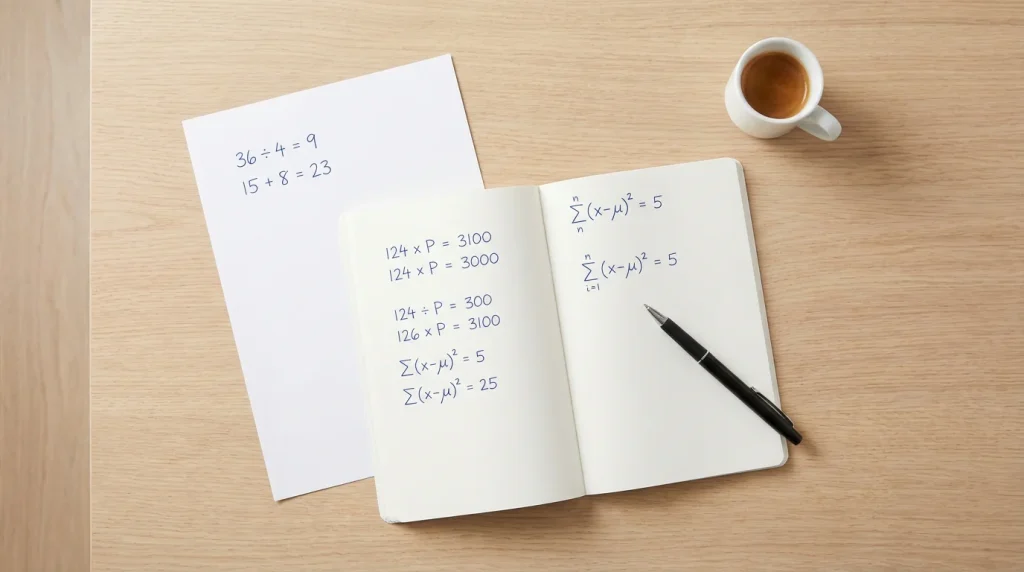 36 ÷ 4 = 9
15 + 8 = 23
124 × P = 3100
124 × P = 3000
124 ÷ P = 300
126 × P = 3100
∑(x-μ)² = 5
∑(x-μ)² = 25
n
∑(x-μ)² = 5
n
n
∑(x-μ)² = 5
i=1